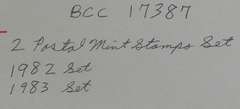 BCC 17387
2 Postal Mint Stamps Set
1982 Set
1983 Set